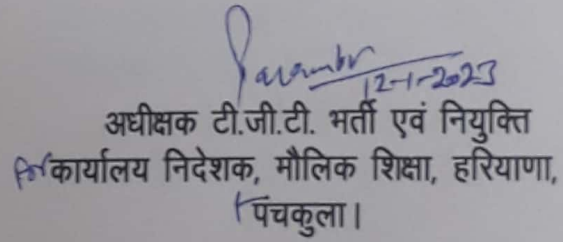 12-1-2023
अधीक्षक टी.जी.टी. भर्ती एवं नियुक्ति
for कार्यालय निदेशक, मौलिक शिक्षा, हरियाणा,
पंचकुला।